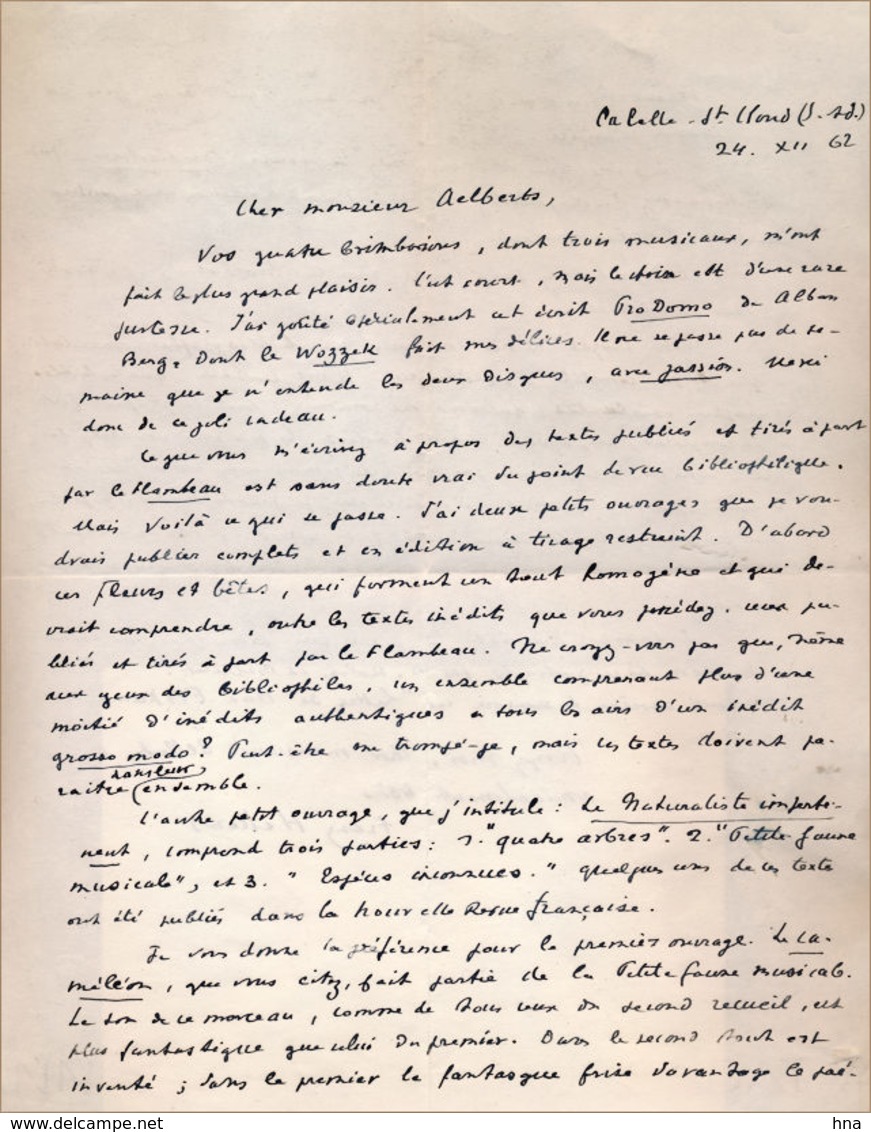 La Celle - St Cloud (S. & O.)
24. XII 62
Cher monsieur Aelberts,
Vos quatre brimborions, dont trois musicaux, m'ont
fait le plus grand plaisir. C'est court, mais le choix est d'une rare
justesse. J'ai goûté spécialement cet écrit Pro Domo de Alban
Berg, dont le Wozzek fait mes délices. Il ne se passe pas de se-
maine que je n'entende les deux disques, avec passion. Merci
donc de ce joli cadeau.
Ce que vous m'écrivez à propos des textes publiés et tirés à part
par le Flambeau est sans doute vrai du point de vue bibliophilique.
Mais voilà ce qui se passe. J'ai deux petits ouvrages que je vou-
drais publier complets et en édition à tirage restreint. D'abord
ces fleurs et bêtes, qui forment un tout homogène et qui de-
vrait comprendre, outre les textes inédits que vous possédez, ceux pu-
bliés et tirés à part par le Flambeau. Ne croyez-vous pas que, même
aux yeux des bibliophiles, un ensemble comprenant plus d'une
moitié d'inédits authentiques a tous les airs d'un inédit
grosso modo? Peut-être me trompé-je, mais ces textes doivent pa-
raître ensemble.
L'autre petit ouvrage, que j'intitule: Le Naturaliste imperti-
nent, comprend trois parties: 1. "quatre arbres". 2. "Petite faune
musicale", et 3. "Espèces inconnues." Quelques uns de ces textes
ont été publiés dans la Nouvelle Revue française.
Je vous donne la préférence pour le premier ouvrage. Le ca-
méléon, que vous citez, fait partie de la Petite faune musicale.
Le ton de ce morceau, comme de tous ceux du second recueil, est
plus fantastique que celui du premier. Dans le second tout est
inventé; dans le premier le fantasque frise davantage le pré-
hna